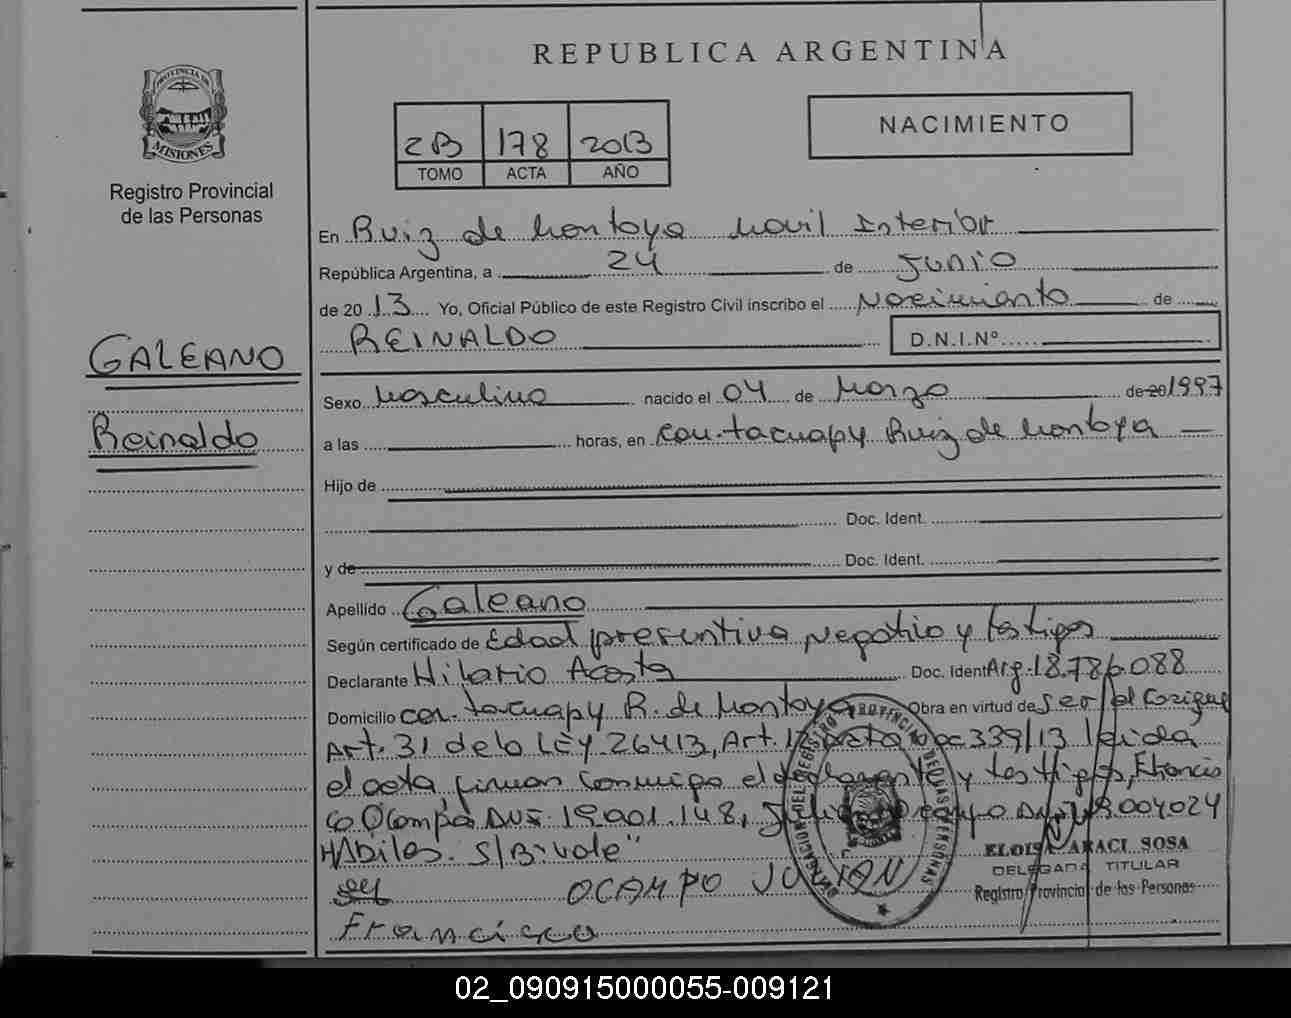 REPUBLICA ARGENTINA
PROVINCIA DE
MISIONES
Registro Provincial
de las Personas
2B 178 2013
TOMO ACTA AÑO
NACIMIENTO
En Ruiz de Montoya Movil Interior
República Argentina, a 24 de Junio
de 2013 Yo, Oficial Público de este Registro Civil inscribo el Nacimiento de
REINALDO D.N.I.Nº
GALEANO
Reinaldo
Sexo Masculino nacido el 04 de Marzo de 20 1997
a las horas, en Cou. tacuapy Ruiz de Montoya
Hijo de
Doc. Ident.
y de Doc. Ident.
Apellido Galeano
Según certificado de Edad presuntiva Negativo y testigos
Declarante Hilario Acosta Doc. Ident Arg. 18.786.088
Domicilio Cou. tacuapy R. de Montoya Obra en virtud de Ser el Cacique
Art. 31 de la LEY 26413, Art. 339/13 leida
el acta, firman conmigo el declarante y testigos, Francis
co Ocampo DNI 19.001.148, Julian Ocampo
HABiles. S/B: vale"
OCAMPO JULIAN
ELOISA ARACI SOSA
DELEGADA TITULAR
Registro Provincial de las Personas
Francisco
02_090915000055-009121